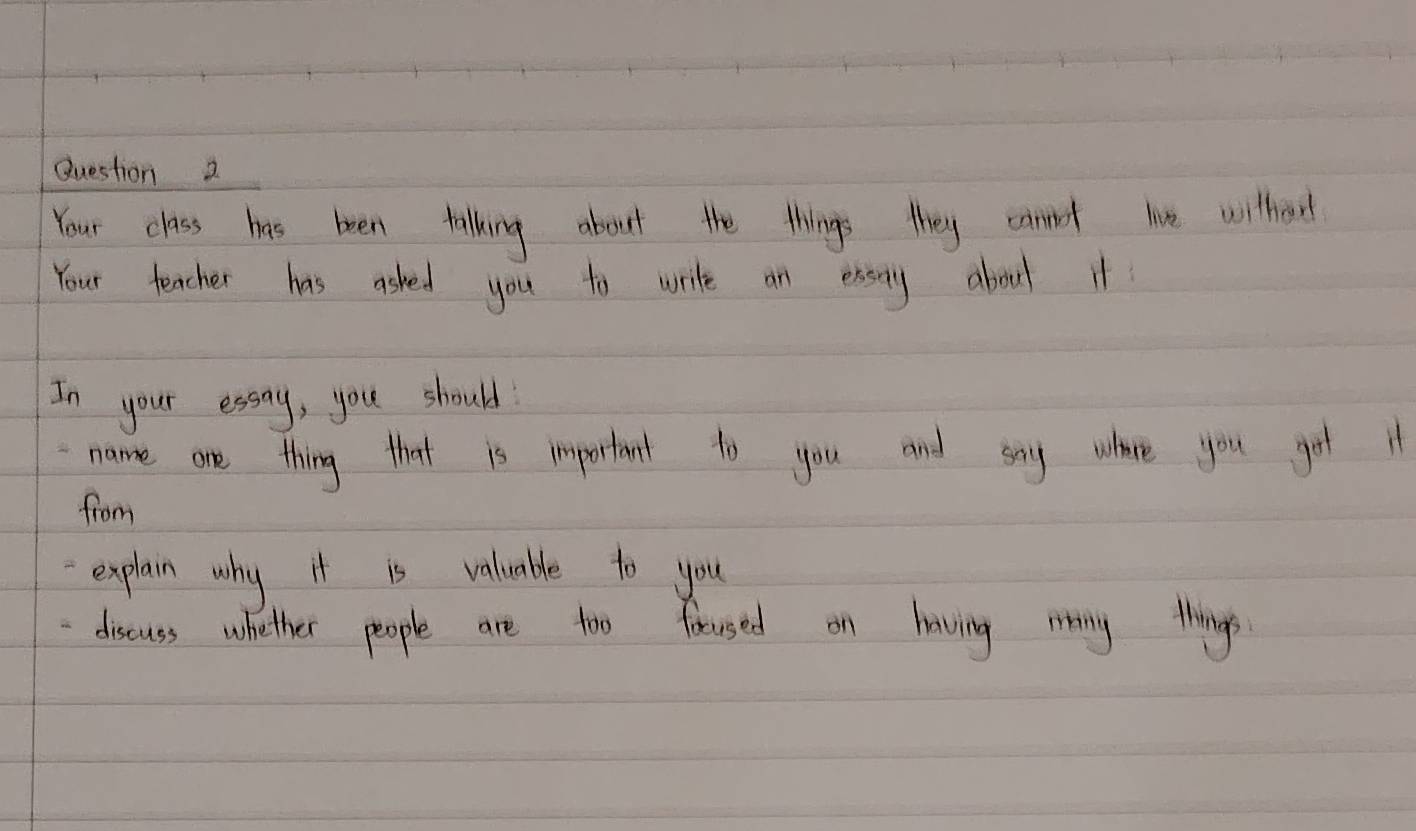 Question 2
Your class has been talking about the things they cannot live without.
Your teacher has asked you to write an essay about it.
In your essay, you should:
- name one thing that is important to you and say where you got it
from
- explain why it is valuable to you
- discuss whether people are too focused on having many things.